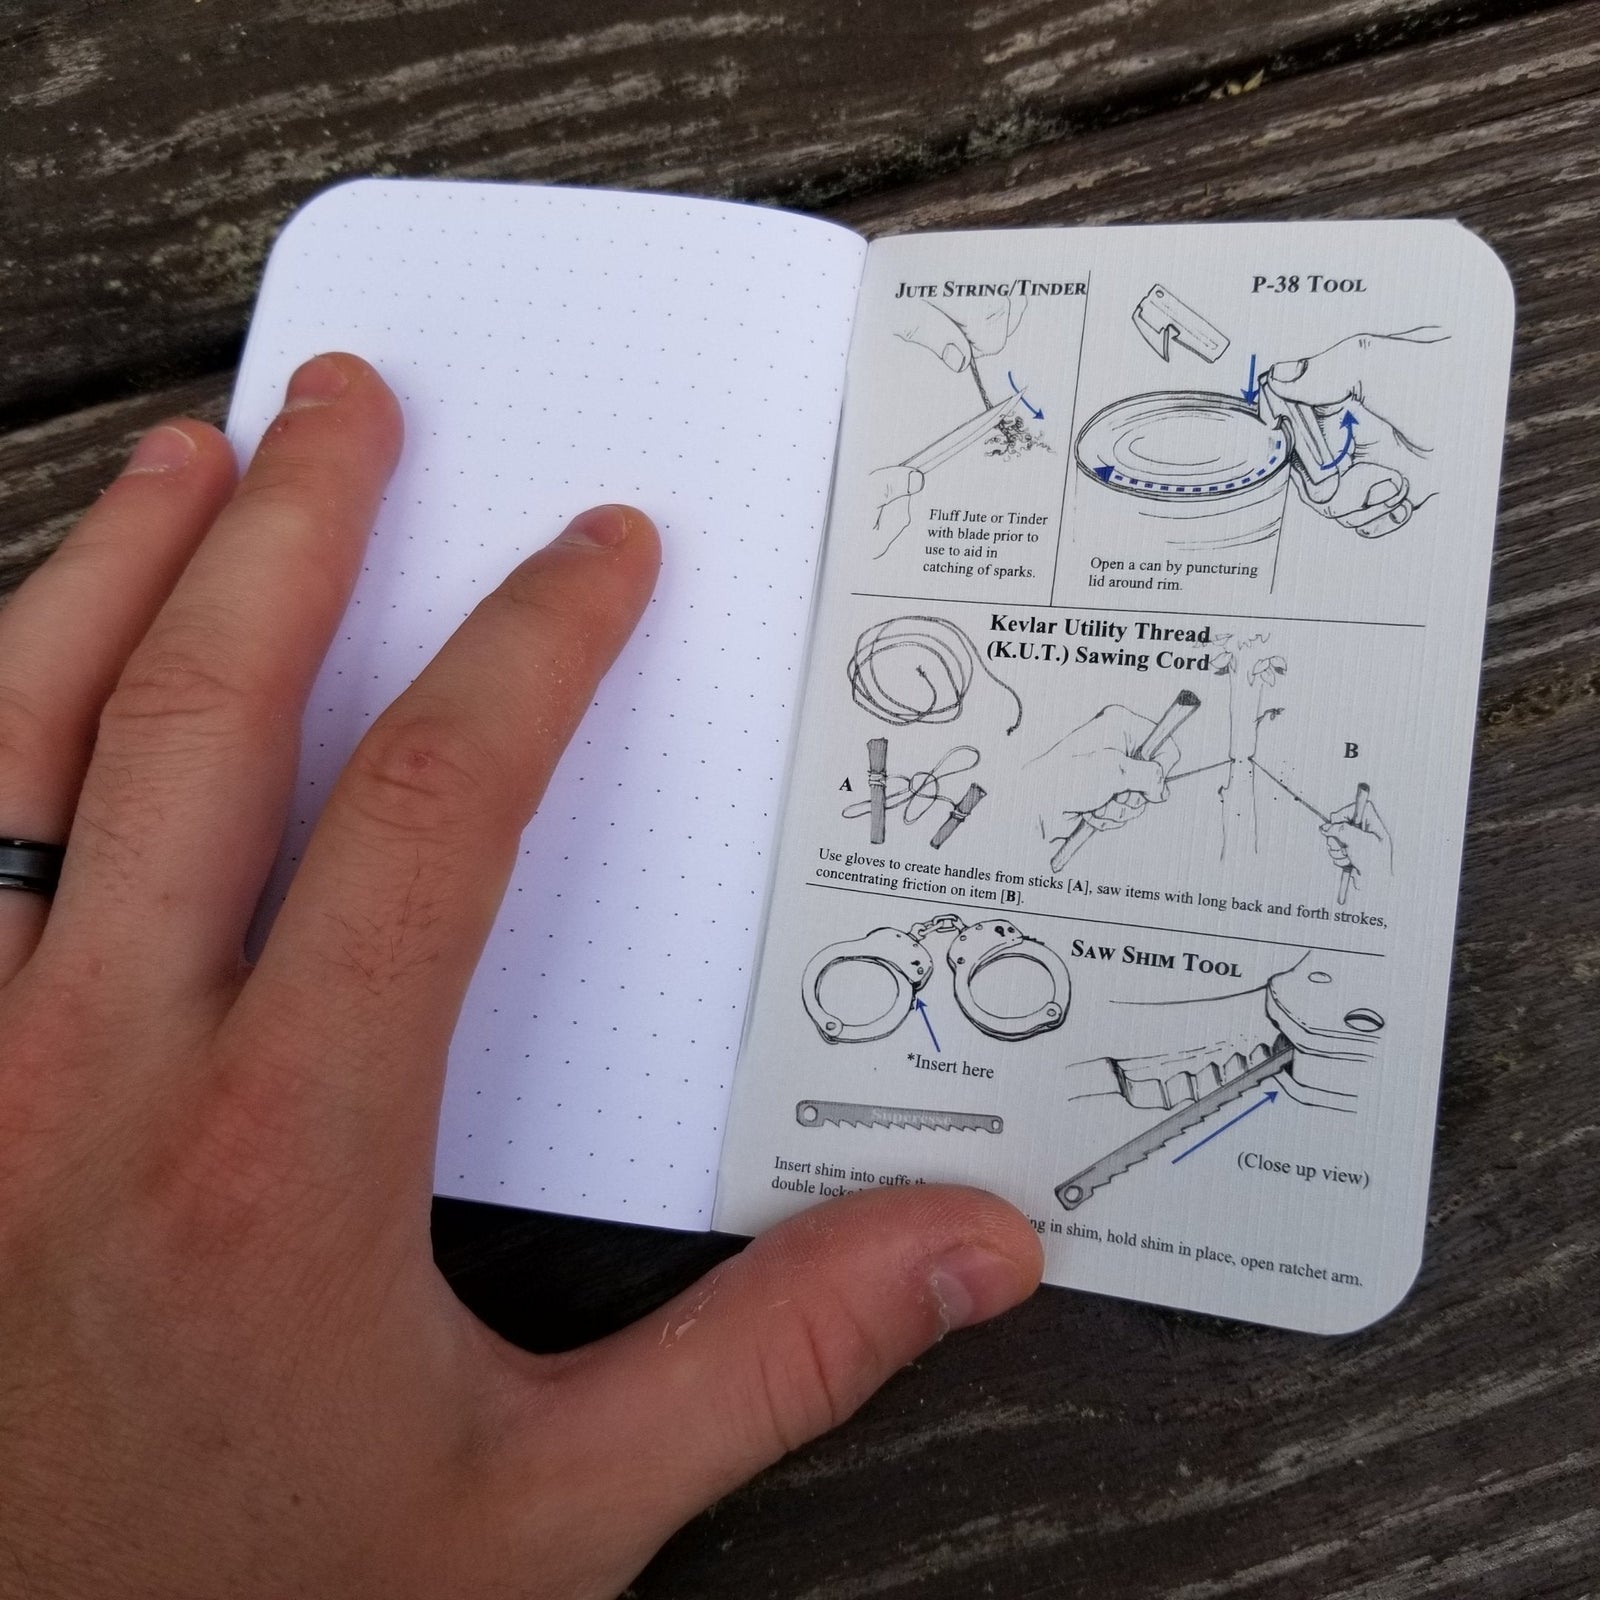 JUTE STRING/TINDER
Fluff Jute or Tinder
with blade prior to
use to aid in
catching of sparks.
P-38 TOOL
Open a can by puncturing
lid around rim.
Kevlar Utility Thread
(K.U.T.) Sawing Cord
A
B
Use gloves to create handles from sticks [A], saw items with long back and forth strokes,
concentrating friction on item [B].
SAW SHIM TOOL
*Insert here
Superesse
(Close up view)
Insert shim into cuffs
double locks
in shim, hold shim in place, open ratchet arm.